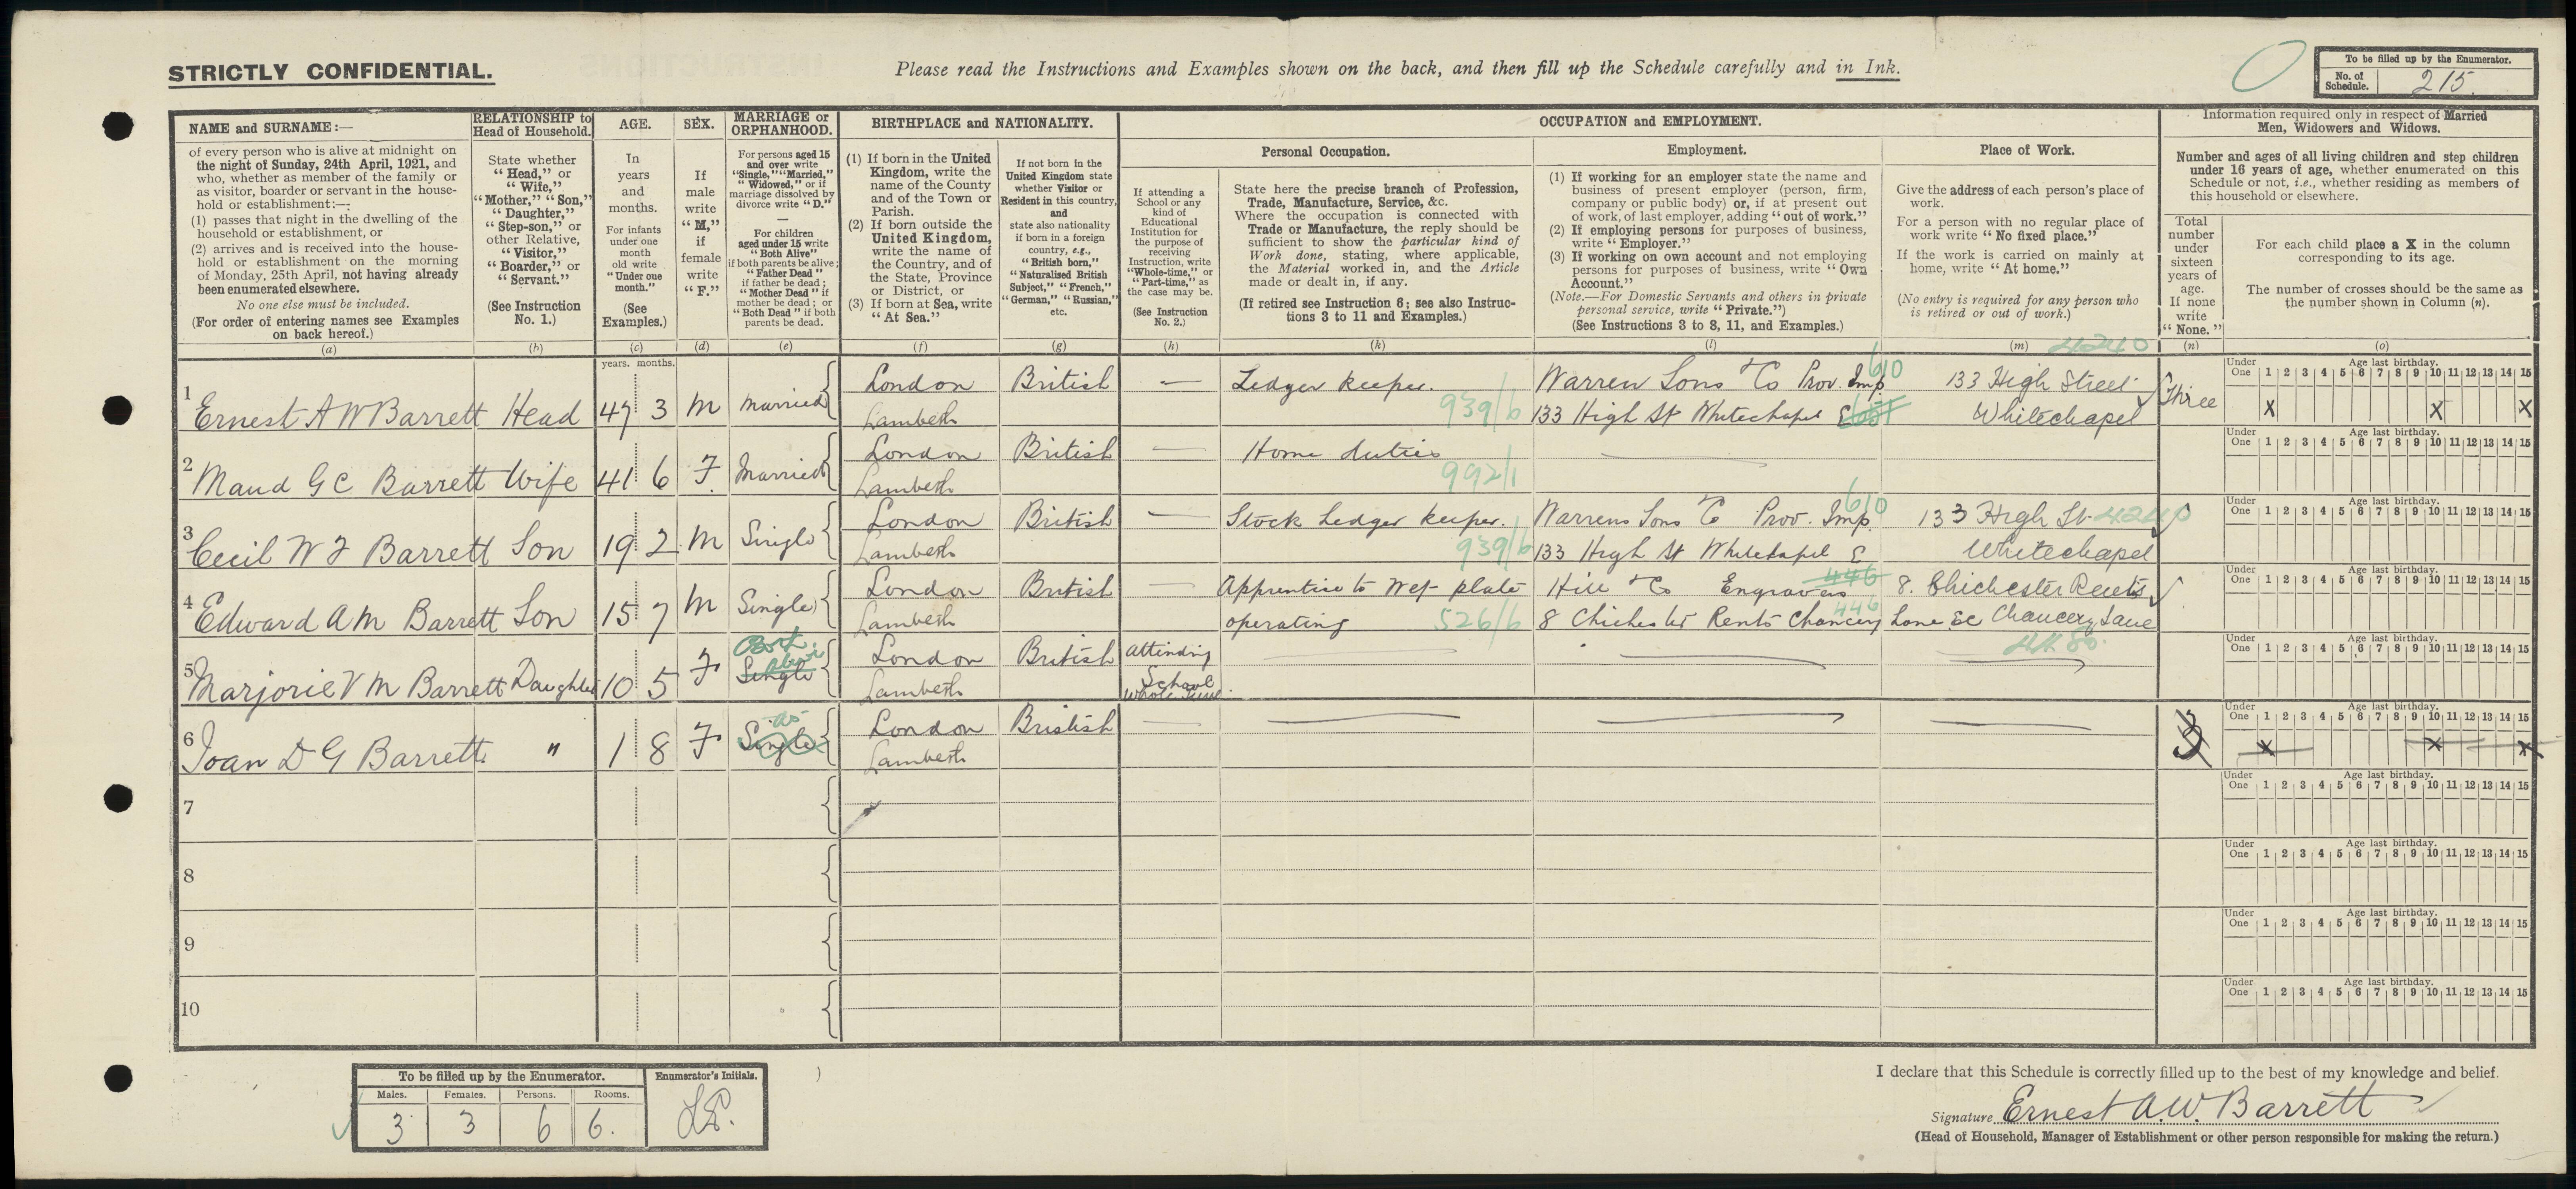 STRICTLY CONFIDENTIAL.
Please read the Instructions and Examples shown on the back, and then fill up the Schedule carefully and in Ink.
To be filled up by the Enumerator.
No. of Schedule. 215.
NAME and SURNAME:—
of every person who is alive at midnight on
the night of Sunday, 24th April, 1921, and
who, whether as member of the family or
as visitor, boarder or servant in the house-
hold or establishment:—
(1) passes that night in the dwelling of the
household or establishment, or
(2) arrives and is received into the house-
hold or establishment on the morning
of Monday, 25th April, not having already
been enumerated elsewhere.
No one else must be included.
(For order of entering names see Examples
on back hereof.)
(a)
RELATIONSHIP to
Head of Household.
State whether
"Head," or
"Wife,"
"Mother," "Son,"
"Daughter,"
"Step-son," or
other Relative,
"Visitor,"
"Boarder," or
"Servant."
(See Instruction
No. 1.)
(b)
AGE.
In
years
and
months.
For infants
under one
month
old write
"Under one
month."
(See
Examples.)
(c)
SEX.
If
male
write
"M,"
if
female
write
"F."
(d)
MARRIAGE or
ORPHANHOOD.
For persons aged 15
and over write
"Single," "Married,"
"Widowed," or if
marriage dissolved by
divorce write "D."
—
For children
aged under 15 write
"Both Alive"
if both parents be alive;
"Father Dead"
if father be dead;
"Mother Dead" if
mother be dead; or
"Both Dead" if both
parents be dead.
(e)
BIRTHPLACE and NATIONALITY.
(1) If born in the United
Kingdom, write the
name of the County
and of the Town or
Parish.
(2) If born outside the
United Kingdom,
write the name of
the Country, and of
the State, Province
or District, or
(3) If born at Sea, write
"At Sea."
(f)
If not born in the
United Kingdom state
whether Visitor or
Resident in this country,
and
state also nationality
if born in a foreign
country, e.g.,
"British born,"
"Naturalised British
Subject," "French,"
"German," "Russian,"
etc.
(g)
OCCUPATION and EMPLOYMENT.
If attending a
School or any
kind of
Educational
Institution for
the purpose of
receiving
Instruction, write
"Whole-time," or
"Part-time," as
the case may be.
(See Instruction
No. 2.)
(h)
Personal Occupation.
State here the precise branch of Profession,
Trade, Manufacture, Service, &c.
Where the occupation is connected with
Trade or Manufacture, the reply should be
sufficient to show the particular kind of
Work done, stating, where applicable,
the Material worked in, and the Article
made or dealt in, if any.
(If retired see Instruction 6; see also Instruc-
tions 3 to 11 and Examples.)
(k)
Employment.
(1) If working for an employer state the name and
business of present employer (person, firm,
company or public body) or, if at present out
of work, of last employer, adding "out of work."
(2) If employing persons for purposes of business,
write "Employer."
(3) If working on own account and not employing
persons for purposes of business, write "Own
Account."
(Note.—For Domestic Servants and others in private
personal service, write "Private.")
(See Instructions 3 to 8, 11, and Examples.)
(l)
Place of Work.
Give the address of each person's place of
work.
For a person with no regular place of
work write "No fixed place."
If the work is carried on mainly at
home, write "At home."
(No entry is required for any person who
is retired or out of work.)
(m) 4240
Information required only in respect of Married
Men, Widowers and Widows.
Number and ages of all living children and step children
under 16 years of age, whether enumerated on this
Schedule or not, i.e., whether residing as members of
this household or elsewhere.
Total
number
under
sixteen
years of
age.
If none
write
"None."
(n)
For each child place a X in the column
corresponding to its age.
The number of crosses should be the same as
the number shown in Column (n).
(o)
years. months.
Under One Age last birthday. 1 2 3 4 5 6 7 8 9 10 11 12 13 14 15
London British — Ledger keeper. Warren Sons & Co Prov. Imp. 610 133 High Street
1 Ernest A W Barrett Head 47 3 M Married Lambeth 939/6 133 High St Whitechapel E Whitechapel Three X X X
Under One Age last birthday. 1 2 3 4 5 6 7 8 9 10 11 12 13 14 15
London British — Home duties
2 Maud G C Barrett Wife 41 6 F. Married Lambeth 992/1
Under One Age last birthday. 1 2 3 4 5 6 7 8 9 10 11 12 13 14 15
London British — Stock Ledger keeper. Warrens Sons & Co Prov. Imp. 610 133 High St. 4240
3 Cecil W F Barrett Son 19 2 M Single Lambeth 939/6 133 High St Whitechapel E Whitechapel
Under One Age last birthday. 1 2 3 4 5 6 7 8 9 10 11 12 13 14 15
London British — Apprentice to Wet plate Hill & Co Engravers 446 8. Chichester Rents
4 Edward A M Barrett Son 15 7 M Single Lambeth operating 526/6 8 Chichester Rents Chancery 446 Lane EC Chancery Lane
Under One Age last birthday. 1 2 3 4 5 6 7 8 9 10 11 12 13 14 15
Both Alive London British attending
5 Marjorie V M Barrett Daughter 10 5 F Single Lambeth School
Whole time.
Under One Age last birthday. 1 2 3 4 5 6 7 8 9 10 11 12 13 14 15
as London British — 3
6 Joan D G Barrett " 1 8 F Single Lambeth X X X
Under One Age last birthday. 1 2 3 4 5 6 7 8 9 10 11 12 13 14 15
7
Under One Age last birthday. 1 2 3 4 5 6 7 8 9 10 11 12 13 14 15
8
Under One Age last birthday. 1 2 3 4 5 6 7 8 9 10 11 12 13 14 15
9
Under One Age last birthday. 1 2 3 4 5 6 7 8 9 10 11 12 13 14 15
10
To be filled up by the Enumerator.
Males. Females. Persons. Rooms.
3 3 6 6.
Enumerator's Initials.
I declare that this Schedule is correctly filled up to the best of my knowledge and belief.
Signature Ernest A.W. Barrett
(Head of Household, Manager of Establishment or other person responsible for making the return.)